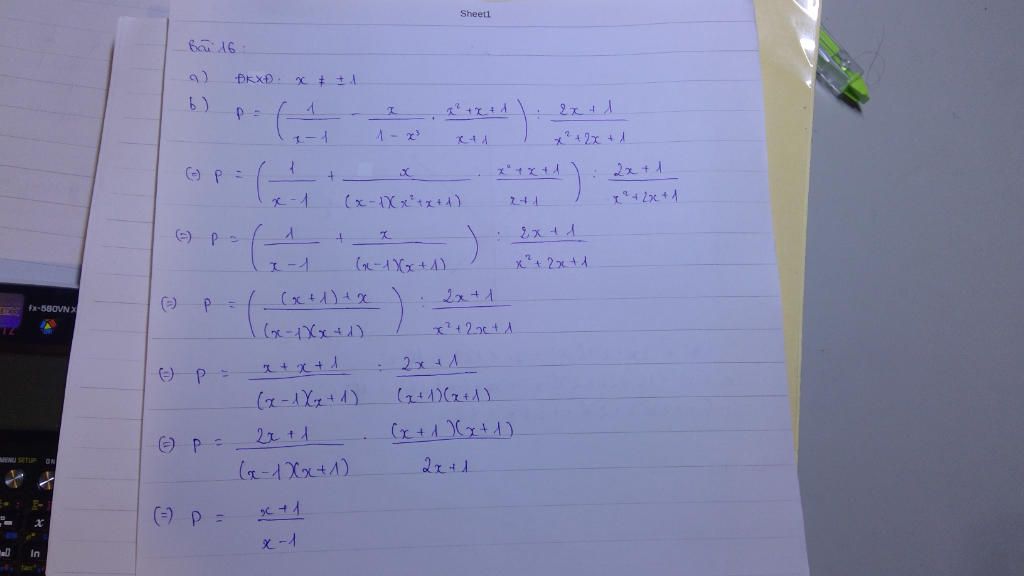 Sheet1
Bài 16:
a) ĐKXĐ: x ≠ ±1
b) P = (1/(x-1) - x/(1-x³) . (x²+x+1)/(x+1)) : (2x+1)/(x²+2x+1)
(=) P = (1/(x-1) + x/((x-1)(x²+x+1)) . (x²+x+1)/(x+1)) : (2x+1)/(x²+2x+1)
(=) P = (1/(x-1) + x/((x-1)(x+1))) : (2x+1)/(x²+2x+1)
(=) P = (((x+1)+x)/((x-1)(x+1))) : (2x+1)/(x²+2x+1)
(=) P = (x+x+1)/((x-1)(x+1)) : (2x+1)/((x+1)(x+1))
(=) P = (2x+1)/((x-1)(x+1)) . ((x+1)(x+1))/(2x+1)
(=) P = (x+1)/(x-1)
fx-580VN X
MENU SETUP ON
x
ln